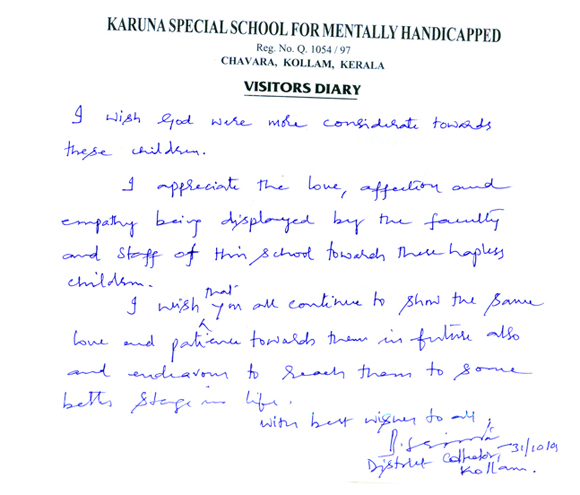 KARUNA SPECIAL SCHOOL FOR MENTALLY HANDICAPPED
Reg. No. Q. 1054 / 97
CHAVARA, KOLLAM, KERALA
VISITORS DIARY
I wish God were more considerate towards
these children.
I appreciate the love, affection and
empathy being displayed by the faculty
and staff of this school towards these hapless
children.
I wish that you all continue to show the same
love and patience towards them in future also
and endeavour to reach them to some
better stage in life.
with best wishes to all,
31/10/09
District Collector,
Kollam.